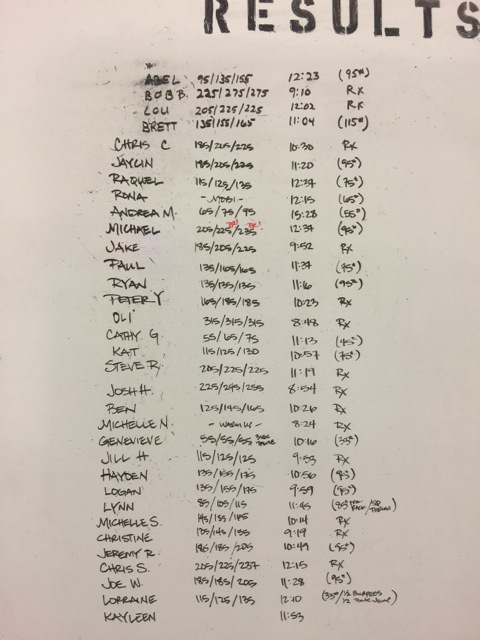 RESULTS
ABEL 95/135/155 12:23 (95#)
BOBB 225/275/275 9:10 RX
LOU 205/225/225 12:02 RX
BRETT 135/155/165 11:04 (115#)
CHRIS C 185/205/225 10:30 RX
JAYLIN 185/205/225 11:20 (95#)
RAQUEL 115/125/135 12:34 (75#)
RONA - MOBI - 12:15 (65#)
ANDREA M. 65/75/95 15:28 (55#)
MICHAEL 205/225/235 12:34 (95#)
JAKE 185/205/225 9:52 RX
PAUL 135/165/165 11:37 (75#)
RYAN 135/135/135 11:16 (95#)
PETER Y 165/185/185 10:23 RX
OLI 315/315/315 8:48 RX
CATHY G. 55/65/75 11:13 (45#)
KAT 115/125/130 10:57 (75#)
STEVE R. 205/225/225 11:19 RX
JOSH H. 225/245/255 8:54 RX
BEN 125/145/165 10:26 RX
MICHELLE N. - WARM W - 8:24 RX
GENEVIEVE 55/55/55 10:16 (35#)
JILL H. 115/125/125 9:53 RX
HAYDEN 135/155/175 10:56 (95)
LOGAN 135/155/175 9:59 (95#)
LYNN 85/105/115 11:45
MICHELLE S. 145/155/145 10:14 RX
CHRISTINE 135/145/155 9:19 RX
JEREMY R. 185/185/205 10:49 (95#)
CHRIS S. 205/225/237 12:15 RX
JOE W. 185/185/205 11:28 (95#)
LORRAINE 115/125/135 12:10 (33#/ 1/2 BURPEES
1/2
KAYLEEN 11:53